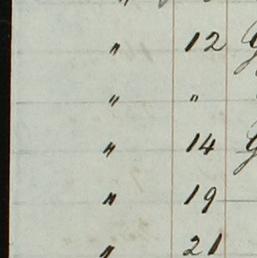 "
" 12
" "
" 14
" 19
" 21